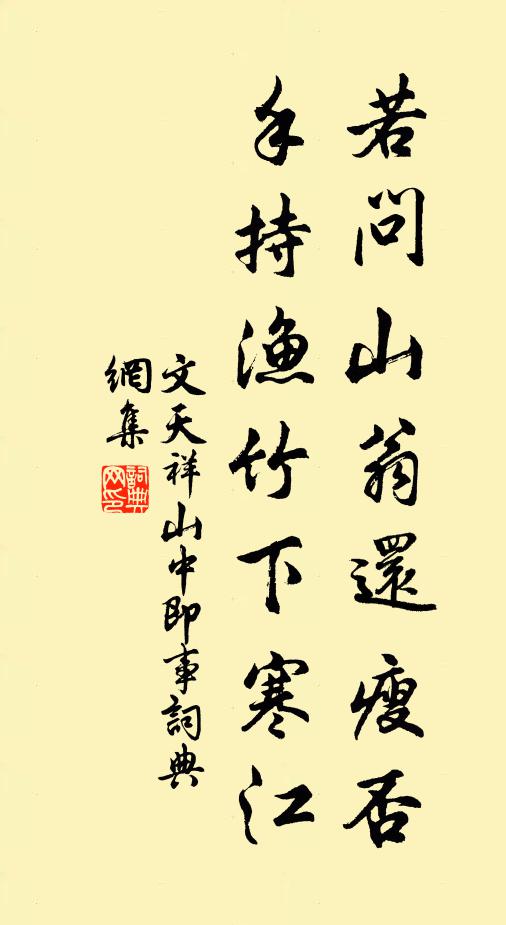 若問山翁還瘦否
手持漁竹下寒江
文天祥山中即事詞典
網集
詞典網印